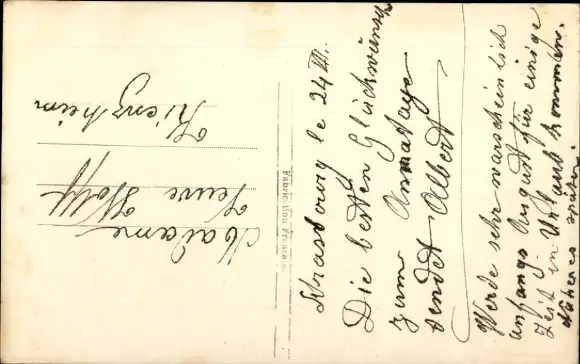 Strasbourg le 24 VII.
Die besten Glückwünsche
zum Annatage
sendet Albert
Werde sehr warscheinlich
anfangs August für einige
Zeit in Urlaub kommen.
Näheres später.
Fabrication Française
Madame
Veuve Wolff
Kienzheim